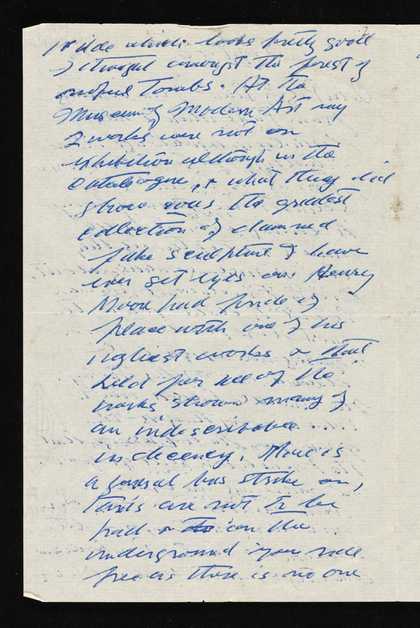 side which looks pretty good
I thought amongst the forest of
awful Tombs. At the
Museum of Modern Art my
2 works were not on
exhibition although in the
Catalogue, & what they did
show was the greatest
collection of damned
fake sculpture I have
ever set eyes on. Henry
Moore had pride of
place with one of his
ugliest works & that
held for all of the
works shown many of
an indescribable
indecency. There is
a general bus strike on,
Taxis are not to be
had & on the
underground you ride
free as there is no one